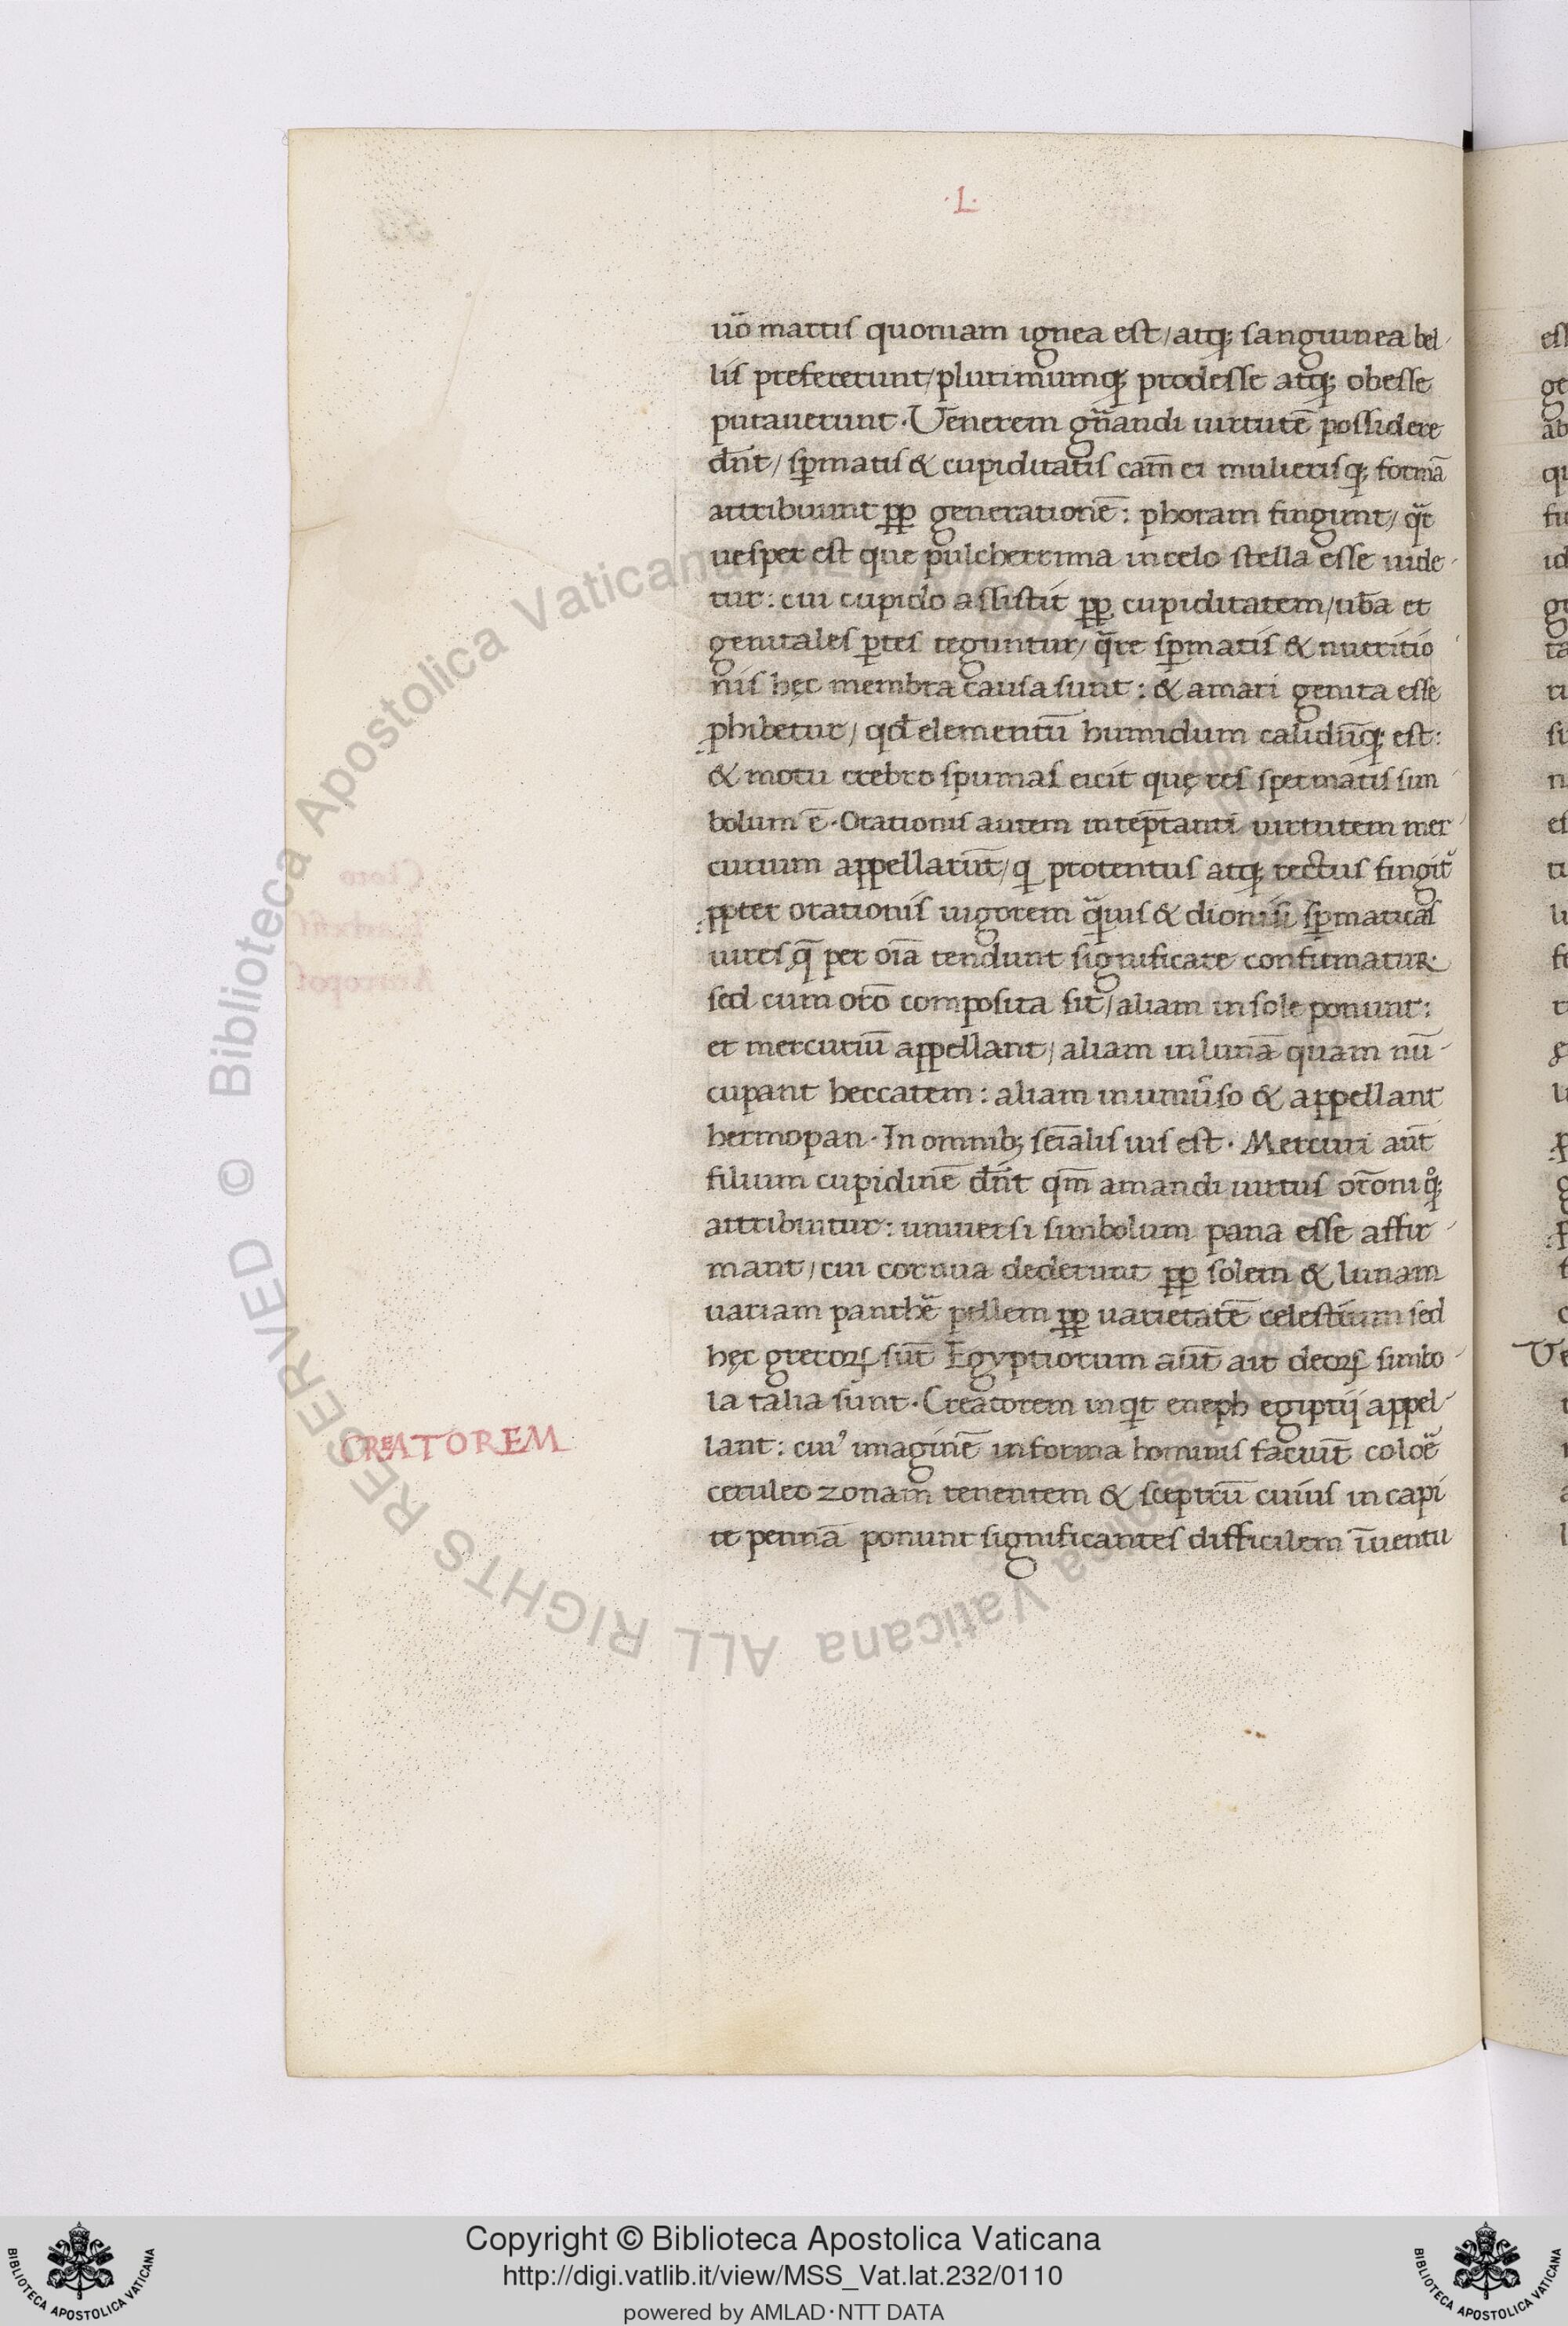 ·L·
uo᷃ martis quoniam ignea est/atq; sanguinea bel-
lis prefererunt/plurimumq; prodesse atq; obesse
putauerunt·Venerem gn̄andi uirtutē possidere
dn̄t/ sꝑmatis & cupiditatis cām ei mulierisq; formā
attribuunt ꝓp generationē: phoram fingunt/ qꝛ̄t
uesper est que pulcherrima in celo stella esse uide-
tur: cui cupido assistit ꝓp cupiditatem/ub̄a et
genitales ꝑtes teguntur/ q̄re sꝑmatis & nutritio
nis hęc membra causa sunt: & a mari genita esse
phibetur/ qd̄ elementū humidum calidūq; est:
& motu crebro spumas eicit quę res spermatis sim
bolum ē·Orationis autem intep̄tanti uirtutem mer-
curium appellarūt/ qi protentus atq; rectus fingit᷑
ppter orationis uigorem q̄uis & dionisi sꝑmaticas
uires q̄ per oīa tendunt significare confirmatur·
sed cum orō composita sit/aliam in sole ponunt:
et mercuriū appellant/ aliam in lunā quam nū-
cupant heccatem: aliam in uniūso & appellant
hermopan·In omnib; seīalis uis est· Mercuri aūt
filium cupidinē dn̄t qm̄ amandi uirtus orōni qͦq;
attribuitur: uniuersi simbolum pana esse affir-
mant/cui cornua dederunt ꝓp solem & lunam
uariam panthē pellem ꝓp uarietatē celestium sed
hęc grecoꝝ sūt Egyptiorum aūt ait deoꝝ simbo-
la talia sunt·Creatorem inqt eneph egiptij appel-
CREATOREM
lant: cui᾿ imaginē in forma hominis faciūt coloē
ceruleo zonam tenentem & sceptrū cuius in capi
te pennā ponunt significantes difficilem īuentu
Copyright © Biblioteca Apostolica Vaticana
http://digi.vatlib.it/view/MSS_Vat.lat.232/0110
powered by AMLAD·NTT DATA